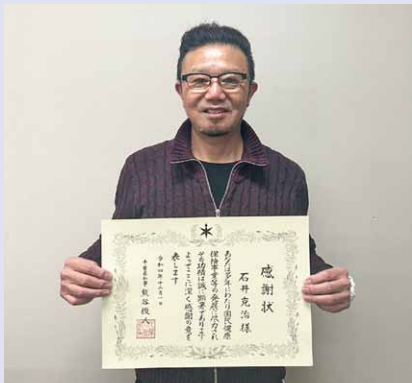 感謝状
石井克治様
あなたは多年にわたり国民健康
保険事業等の発展に尽力され
その功績は誠に顕著であります
よってここに深く感謝の意を
表します
令和四年十二月一日
千葉県知事 熊谷俊人